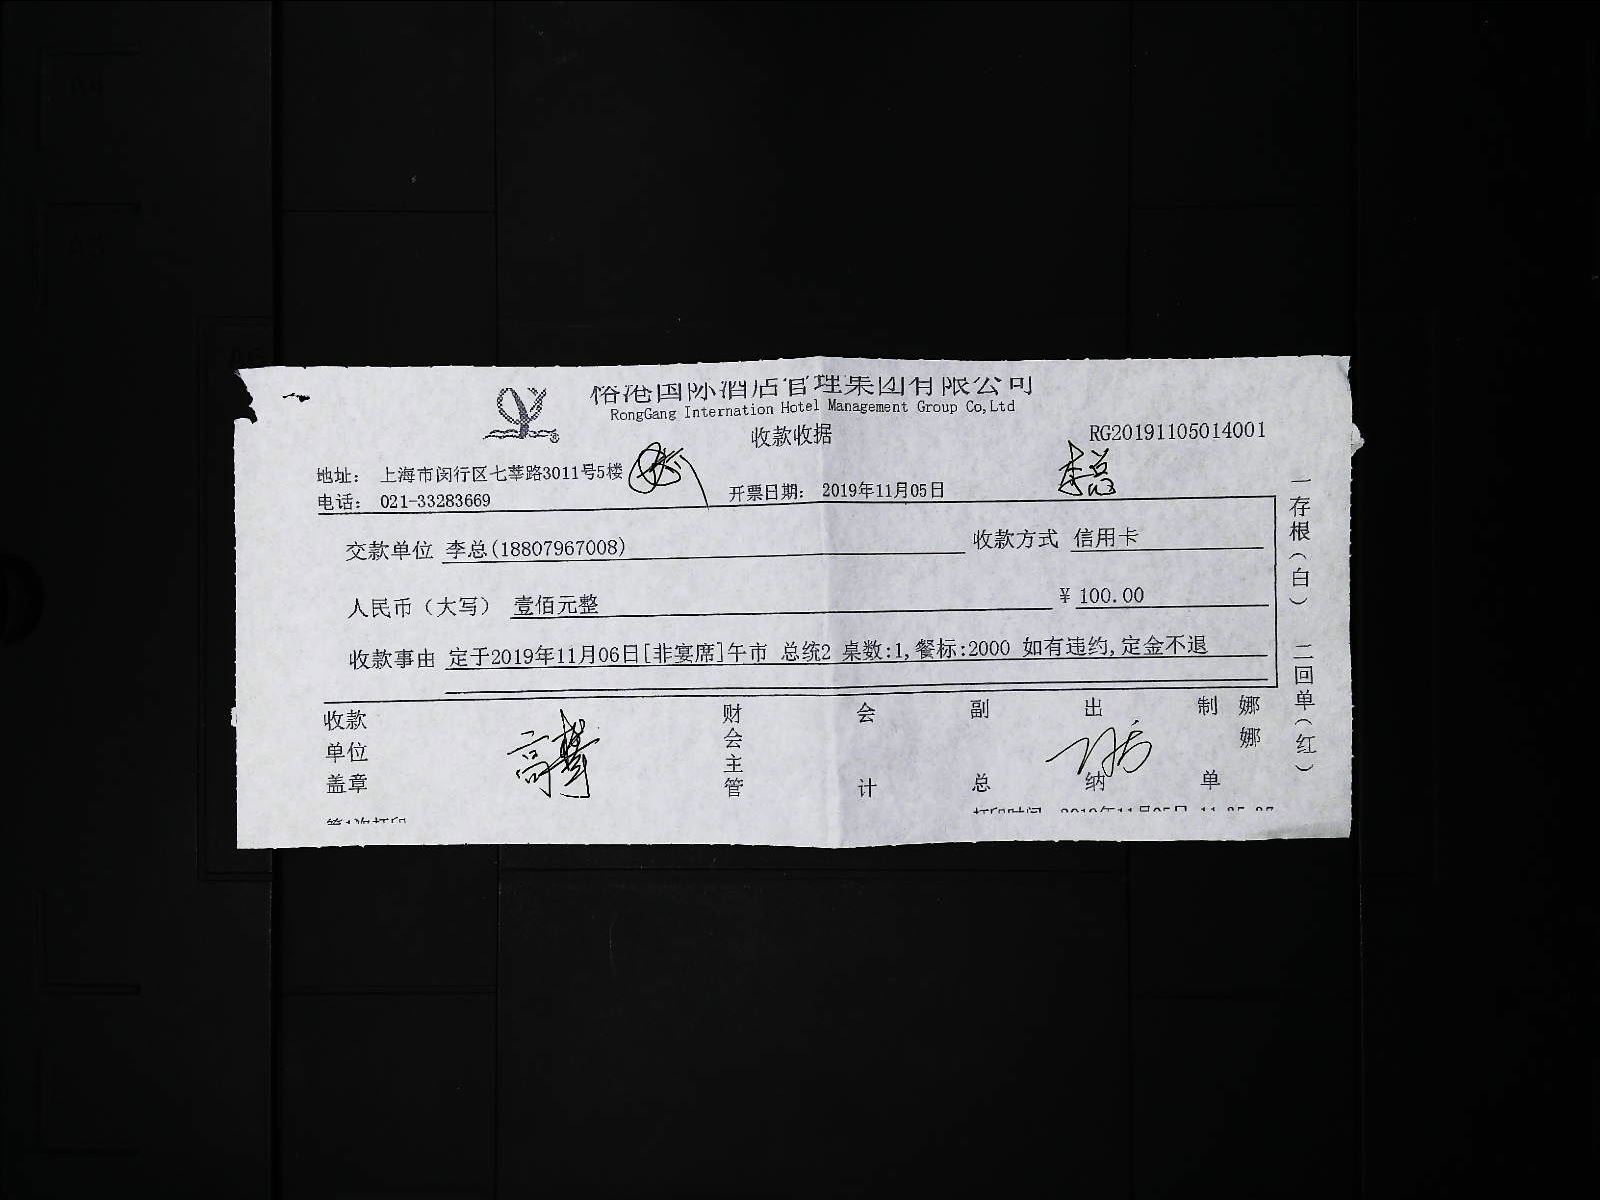 榕港国际酒店管理集团有限公司
RongGang Internation Hotel Management Group Co,Ltd
收款收据
RG20191105014001
地址: 上海市闵行区七莘路3011号5楼
李总
电话: 021-33283669
开票日期: 2019年11月05日
交款单位 李总(18807967008) 收款方式 信用卡
人民币（大写） 壹佰元整 ¥ 100.00
收款事由 定于2019年11月06日[非宴席]午市 总统2 桌数:1,餐标:2000 如有违约,定金不退
收款单位盖章
财会主管
会计
副总
出纳
制单
娜娜
一存根(白) 二回单(红)
第1次打印
打印时间 2019年11月05日